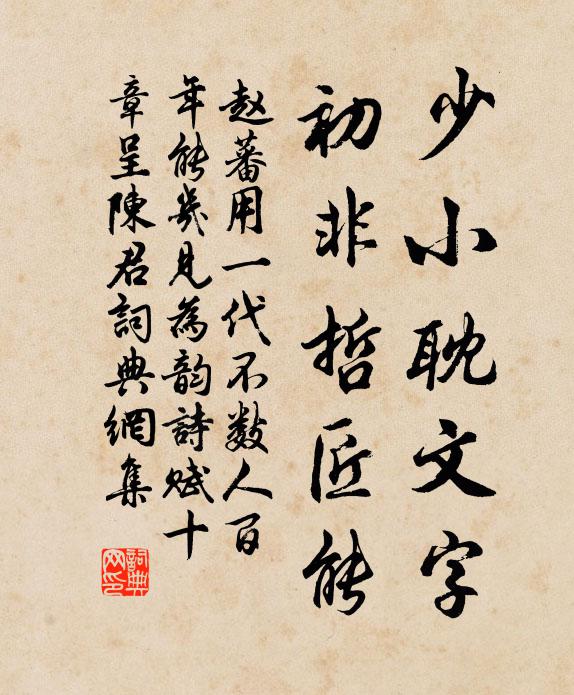 少小耽文字
初非哲匠能
赵蕃用一代不数人百
年能几見為韵詩赋十
章呈陳君詞典網集
詞典
网印